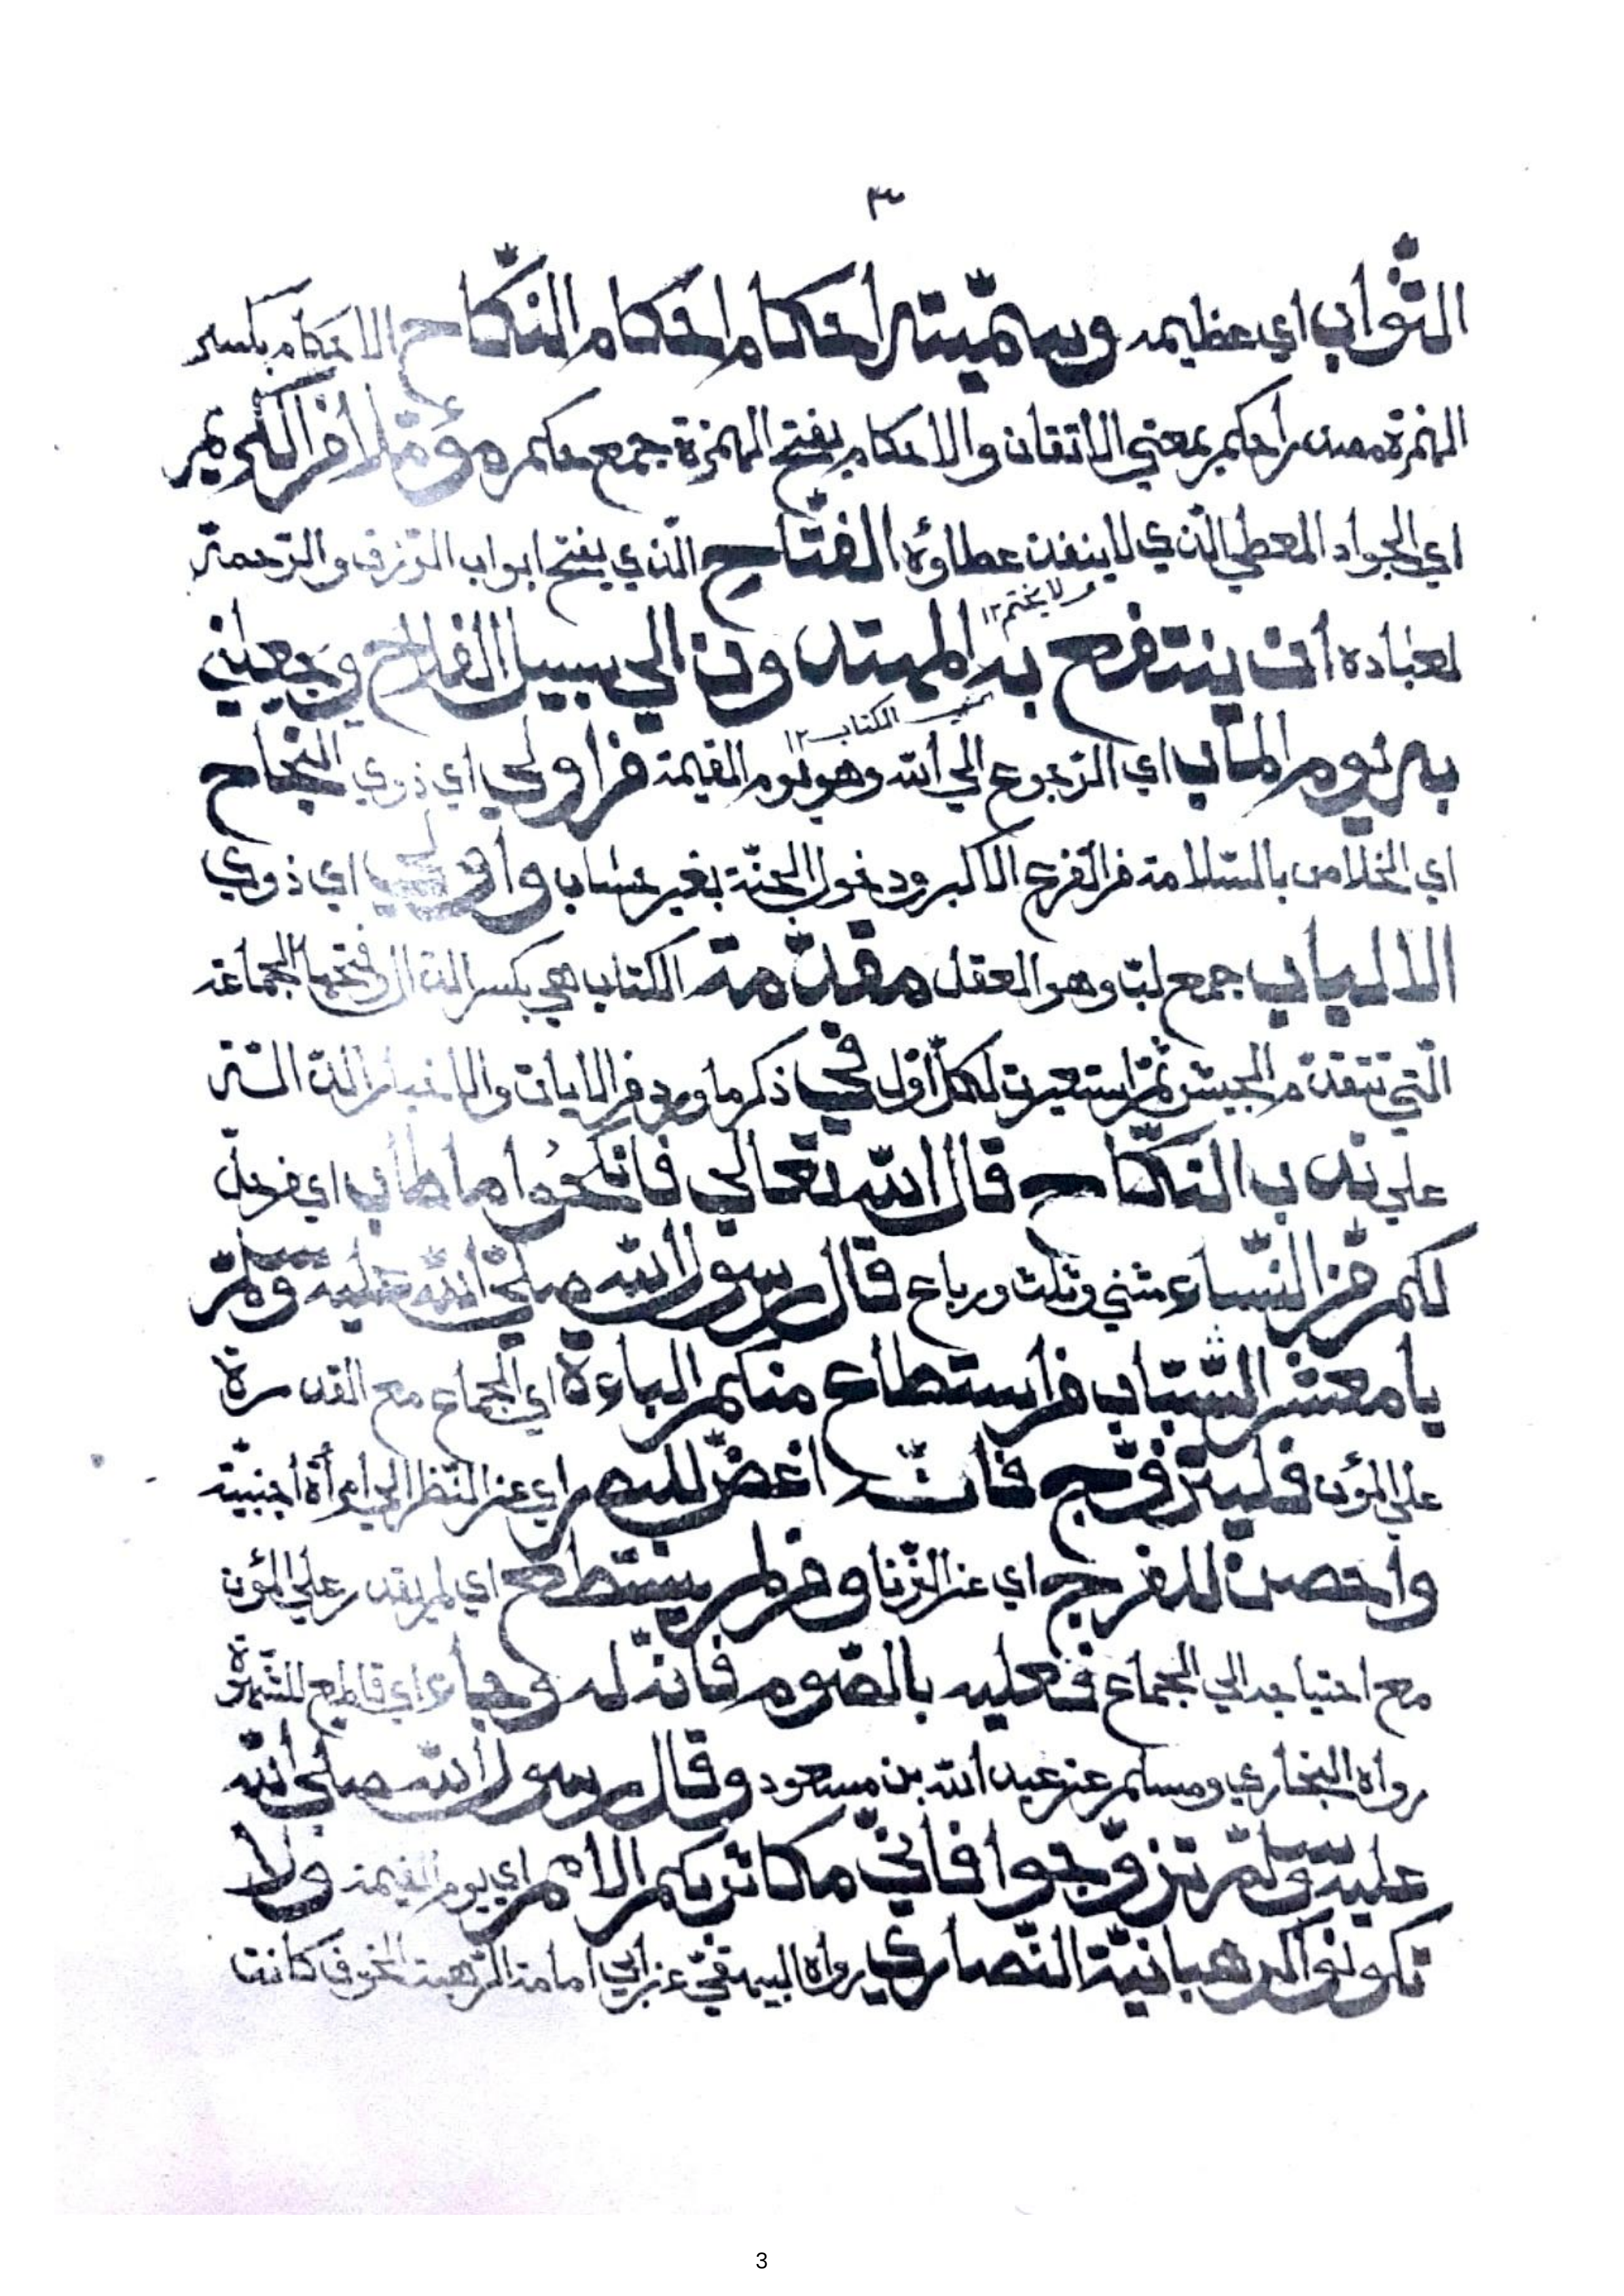 ٣
الثواب اي عظيمه وسمّيته احكام احكام النكاح الاحكام بكسر
الهمزة مصدر احكم بمعني الاتقان والاحكام بفتح الهمزة جمع حكم مؤمّلا من الكريم
اي الجواد المعطي الذي لا ينفد عطاؤه الفتّاح الذي يفتح ابواب الرّزق والرّحمة
ولا يختم ١٢
لعباده ان ينتفع به المهتدون الي سبيل الفلاح ويجعلني
اي الكتاب ١٢
به يوم المآب اي الرجوع الي الله وهو يوم القيمة من اولي اي ذوي النجاح
اي الخلاص بالسّلامة من الفزع الاكبر ودخول الجنّة بغير حساب واولي اي ذوي
الالباب جمع لبّ وهو العقل مقدّمة الكتاب هي بكسر الدّال وفتحها الجماعة
الّتي تتقدّم الجيش ثمّ استعيرت لكلّ اوّل في ذكر ما ورد من الايات والاخبار الدّالّة
علي ندب النكّاح قال الله تعالي فانكحوا ما طاب اي من حلّ
لكم مّن النّساء مثني وثلث ورباع قال رسول الله صلّي الله عليه وسلّم
يا معشر الشّباب من استطاع منكم الباءة اي الجماع مع القدرة
علي المؤن فليتزوّج فانّه اغضّ للبصر اي عن النّظر الي امرأة اجنبيّة
واحصن للفرج اي عن الزّنا ومن لم يستطع اي لم يقدر علي المؤن
مع احتياجه الي الجماع فعليه بالصّوم فانّه له وجاء اي قاطع للشّهوة
رواه البخاري ومسلم عن عبد الله بن مسعود وقال رسول الله صلّي الله
عليه وسلّم تزوّجوا فانّي مكاثر بكم الامم اي يوم القيمة ولا
تكونوا كرهبانيّة النّصاري رواه البيهقيّ عن ابي امامة الرّهبة الخوف كانت
3